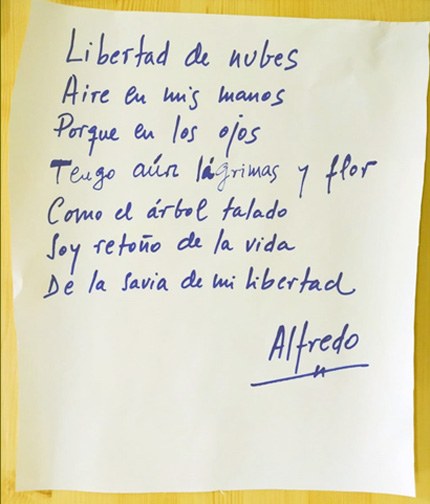 Libertad de nubes
Aire en mis manos
Porque en los ojos
Tengo aún lágrimas y flor
Como el árbol talado
Soy retoño de la vida
De la savia de mi libertad
Alfredo